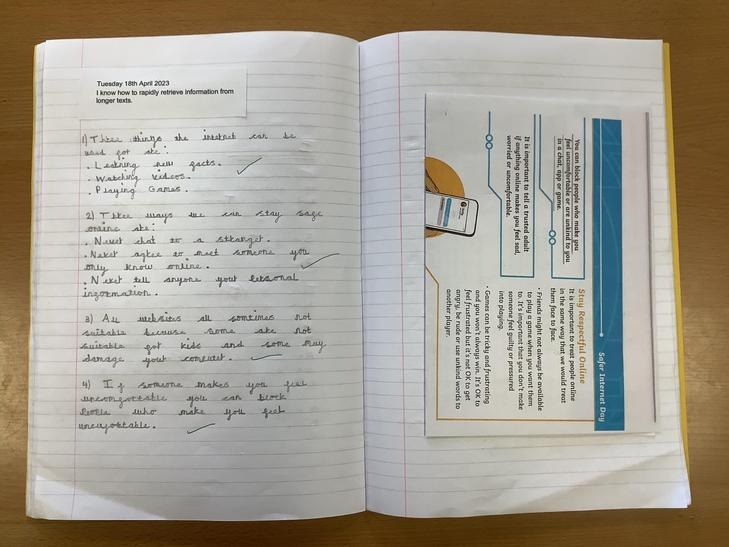 Tuesday 18th April 2023
I know how to rapidly retrieve information from
longer texts.
1) Three things the internet can be
used for are:
. Learning new facts.
. Watching videos.
. Playing Games.
2) Three ways we can stay safe
online are:
. Never chat to a stranger.
. Never agree to meet someone you
only know online.
. Never tell anyone your personal
information.
3) All websites all somtimes not
suitable because some are not
suitable for kids and some may
damage your computer.
4) If someone makes you feel
uncomfortable you can block
people who make you feel
uncufortable.
Safer Internet Day
Stay Respectful Online
It is important to treat people online
in the same way that we would treat
them face to face.
• Friends might not always be available
to play a game when you want them
to. It's important that you don't make
someone feel guilty or pressured
into playing.
• Games can be tricky and frustrating
and you won't always win. It's OK to
feel frustrated but it's not OK to get
angry, be rude or use unkind words to
another player.
You can block people who make you
feel uncomfortable or are unkind to you
in a chat, app or game.
It is important to tell a trusted adult
if anything online makes you feel sad,
worried or uncomfortable.